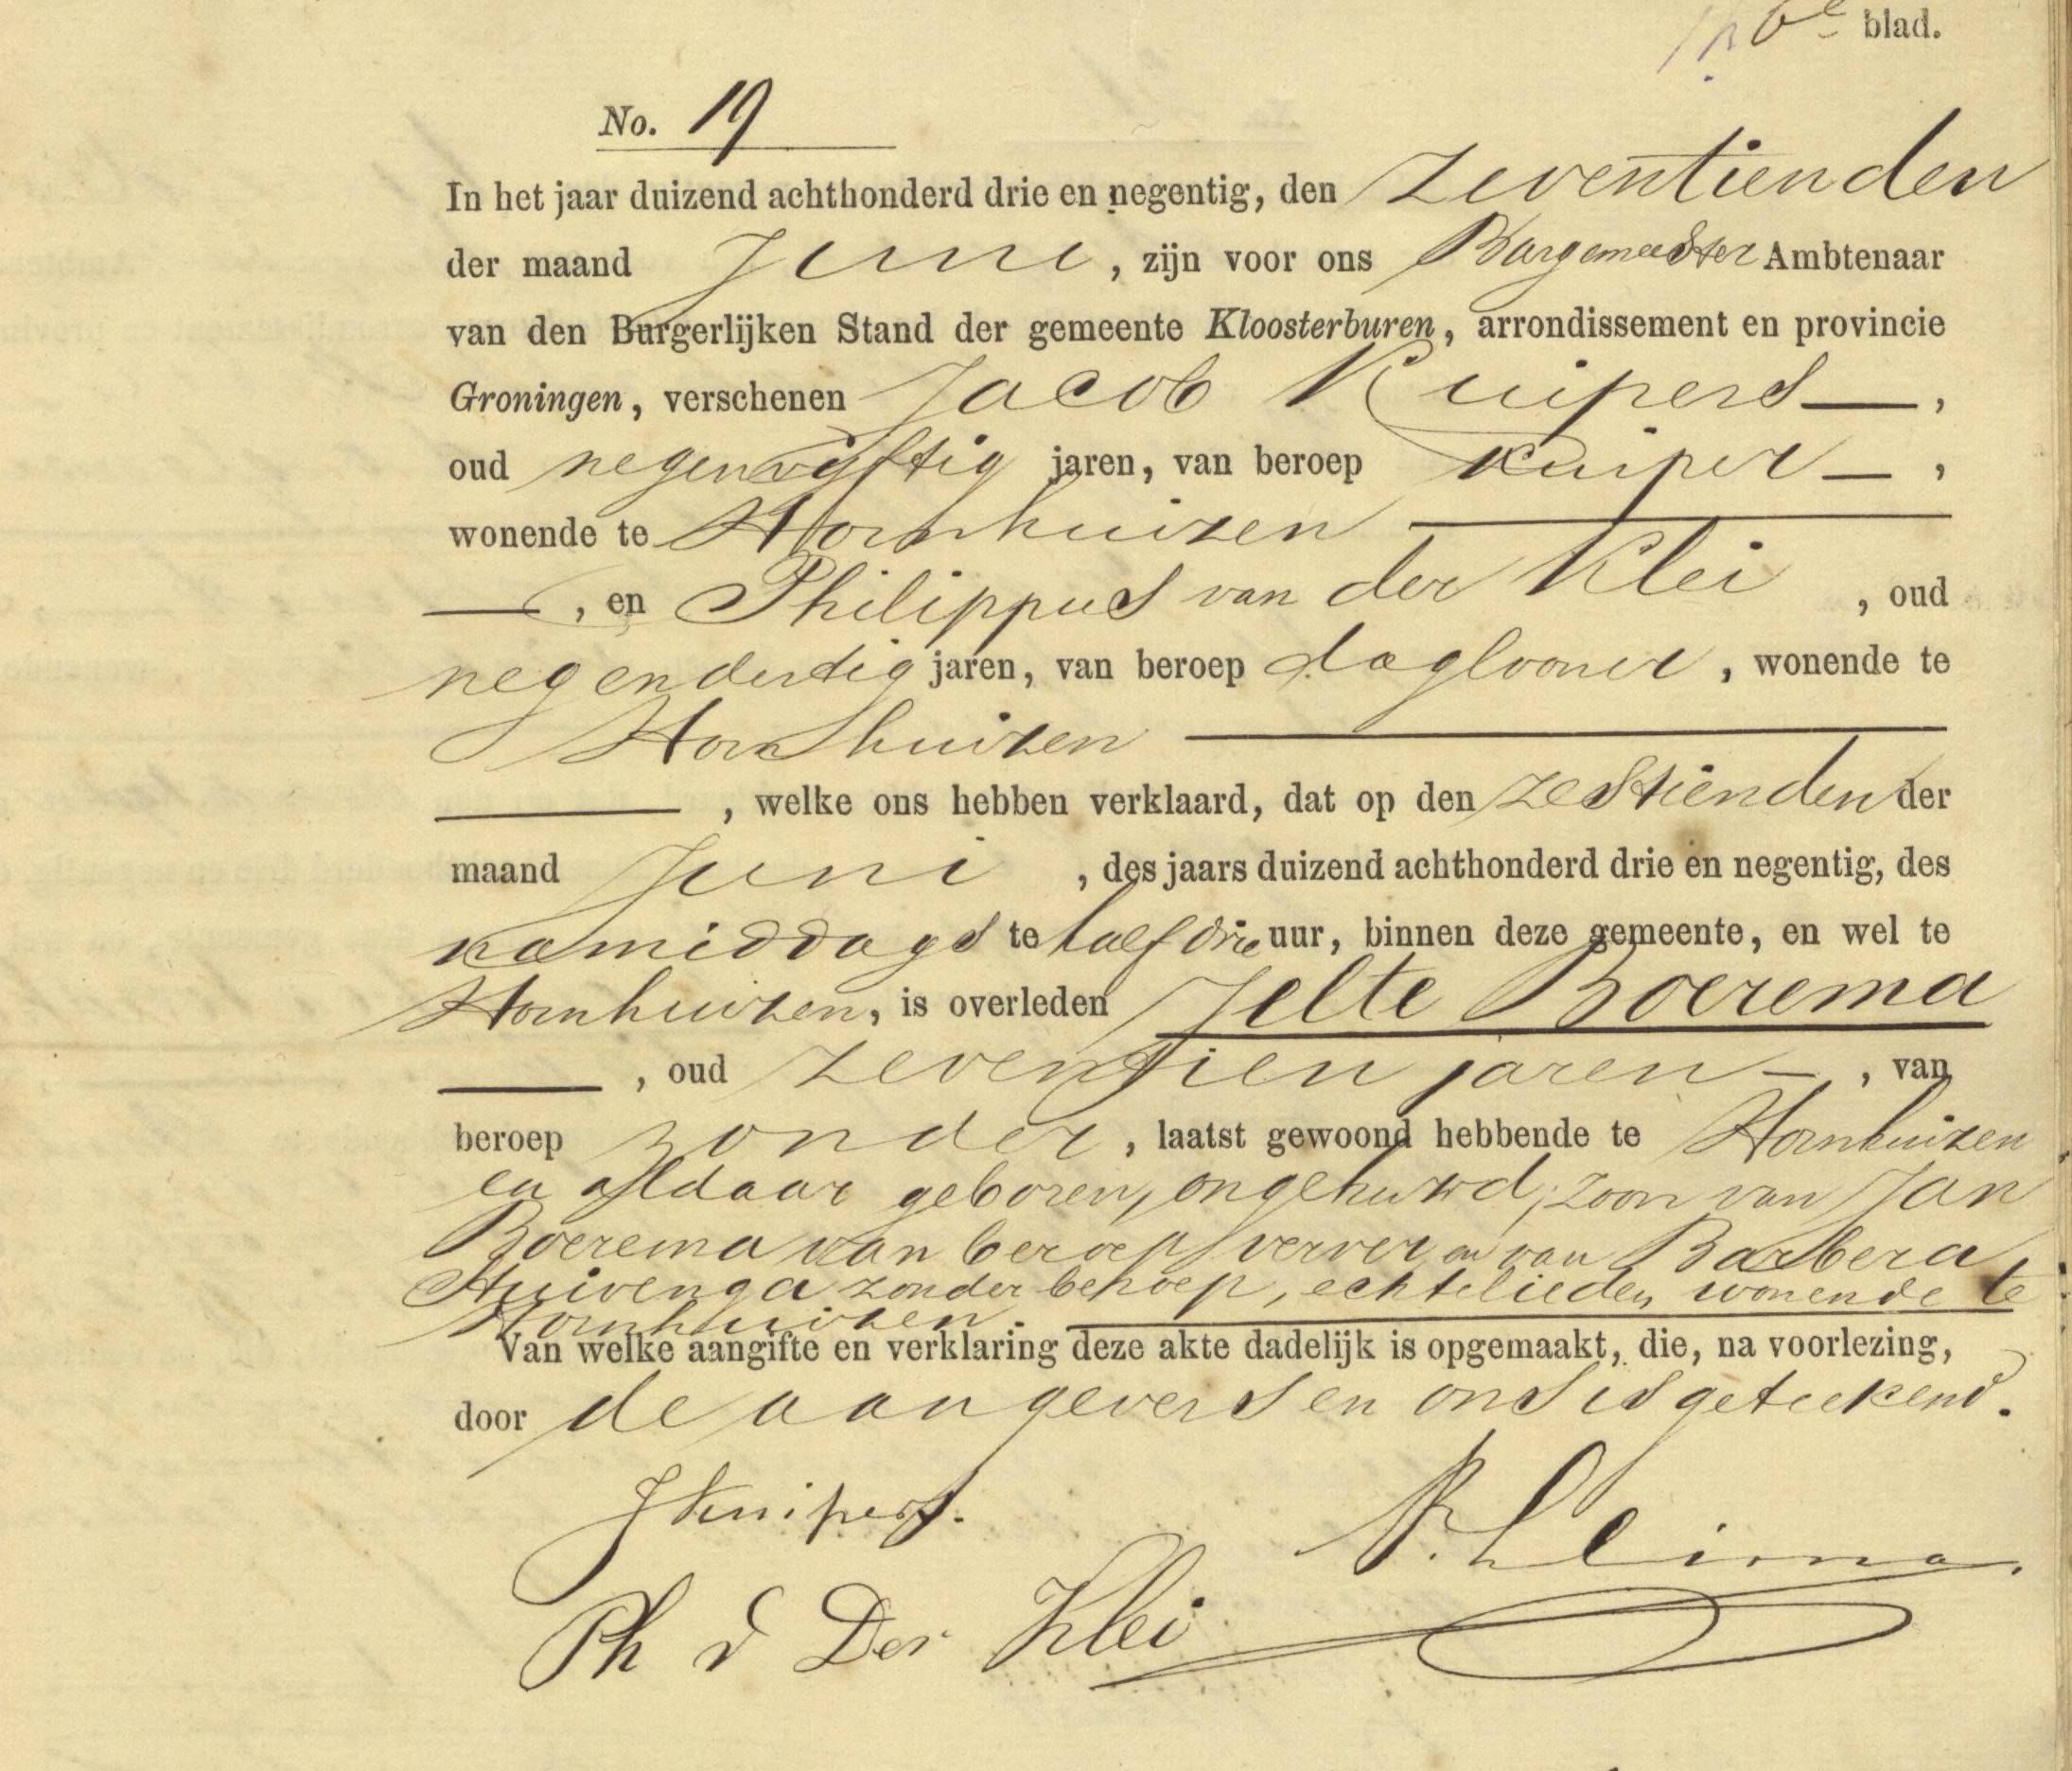 6e blad.
No. 19
In het jaar duizend achthonderd drie en negentig, den zeventienden
der maand Juni, zijn voor ons Burgemeester Ambtenaar
van den Burgerlijken Stand der gemeente Kloosterburen, arrondissement en provincie
Groningen, verschenen Jacob Kuipers —,
oud negenvijftig jaren, van beroep kuiper —,
wonende te Hornhuizen —
—, en Philippus van der Klei, oud
negendertig jaren, van beroep daglooner, wonende te
Hornhuizen —
—, welke ons hebben verklaard, dat op den zestienden der
maand Juni, des jaars duizend achthonderd drie en negentig, des
namiddags te half drie uur, binnen deze gemeente, en wel te
Hornhuizen, is overleden Jelte Boerema
—, oud zeventien jaren —, van
beroep zonder, laatst gewoond hebbende te Hornhuizen
en aldaar geboren, ongehuwd, zoon van Jan
Boerema van beroep verver en van Barbera
Huivenga zonder beroep, echtelieden wonende te
Hornhuizen. —
Van welke aangifte en verklaring deze akte dadelijk is opgemaakt, die, na voorlezing,
door de aangevers en ons is geteekend.
J Kuipers.
Ph v Der Klei